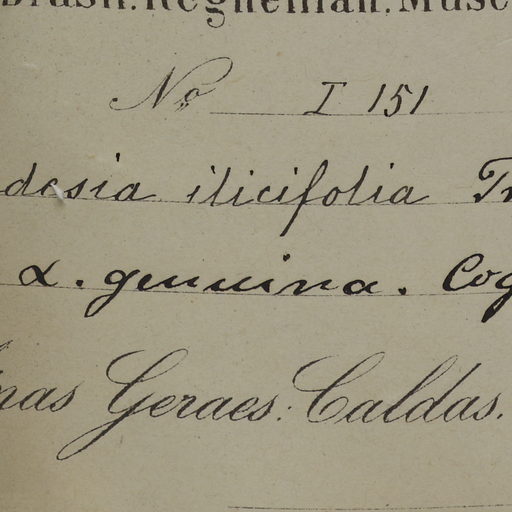 Brasil. Regnellian. Musc
No I 151
desia ilicifolia Tr
α. genuina. Cog
inas Geraes: Caldas.